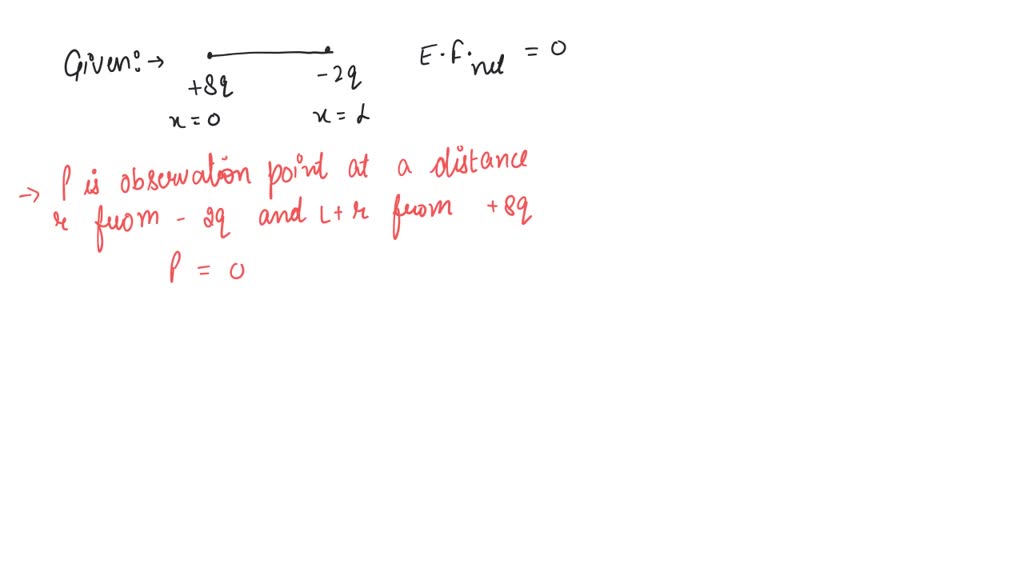 Given:→ +8q -2q E.F.net = 0
x=0 x=L
→ P is observation point at a distance
r from - 2q and L+r from +8q
P = 0